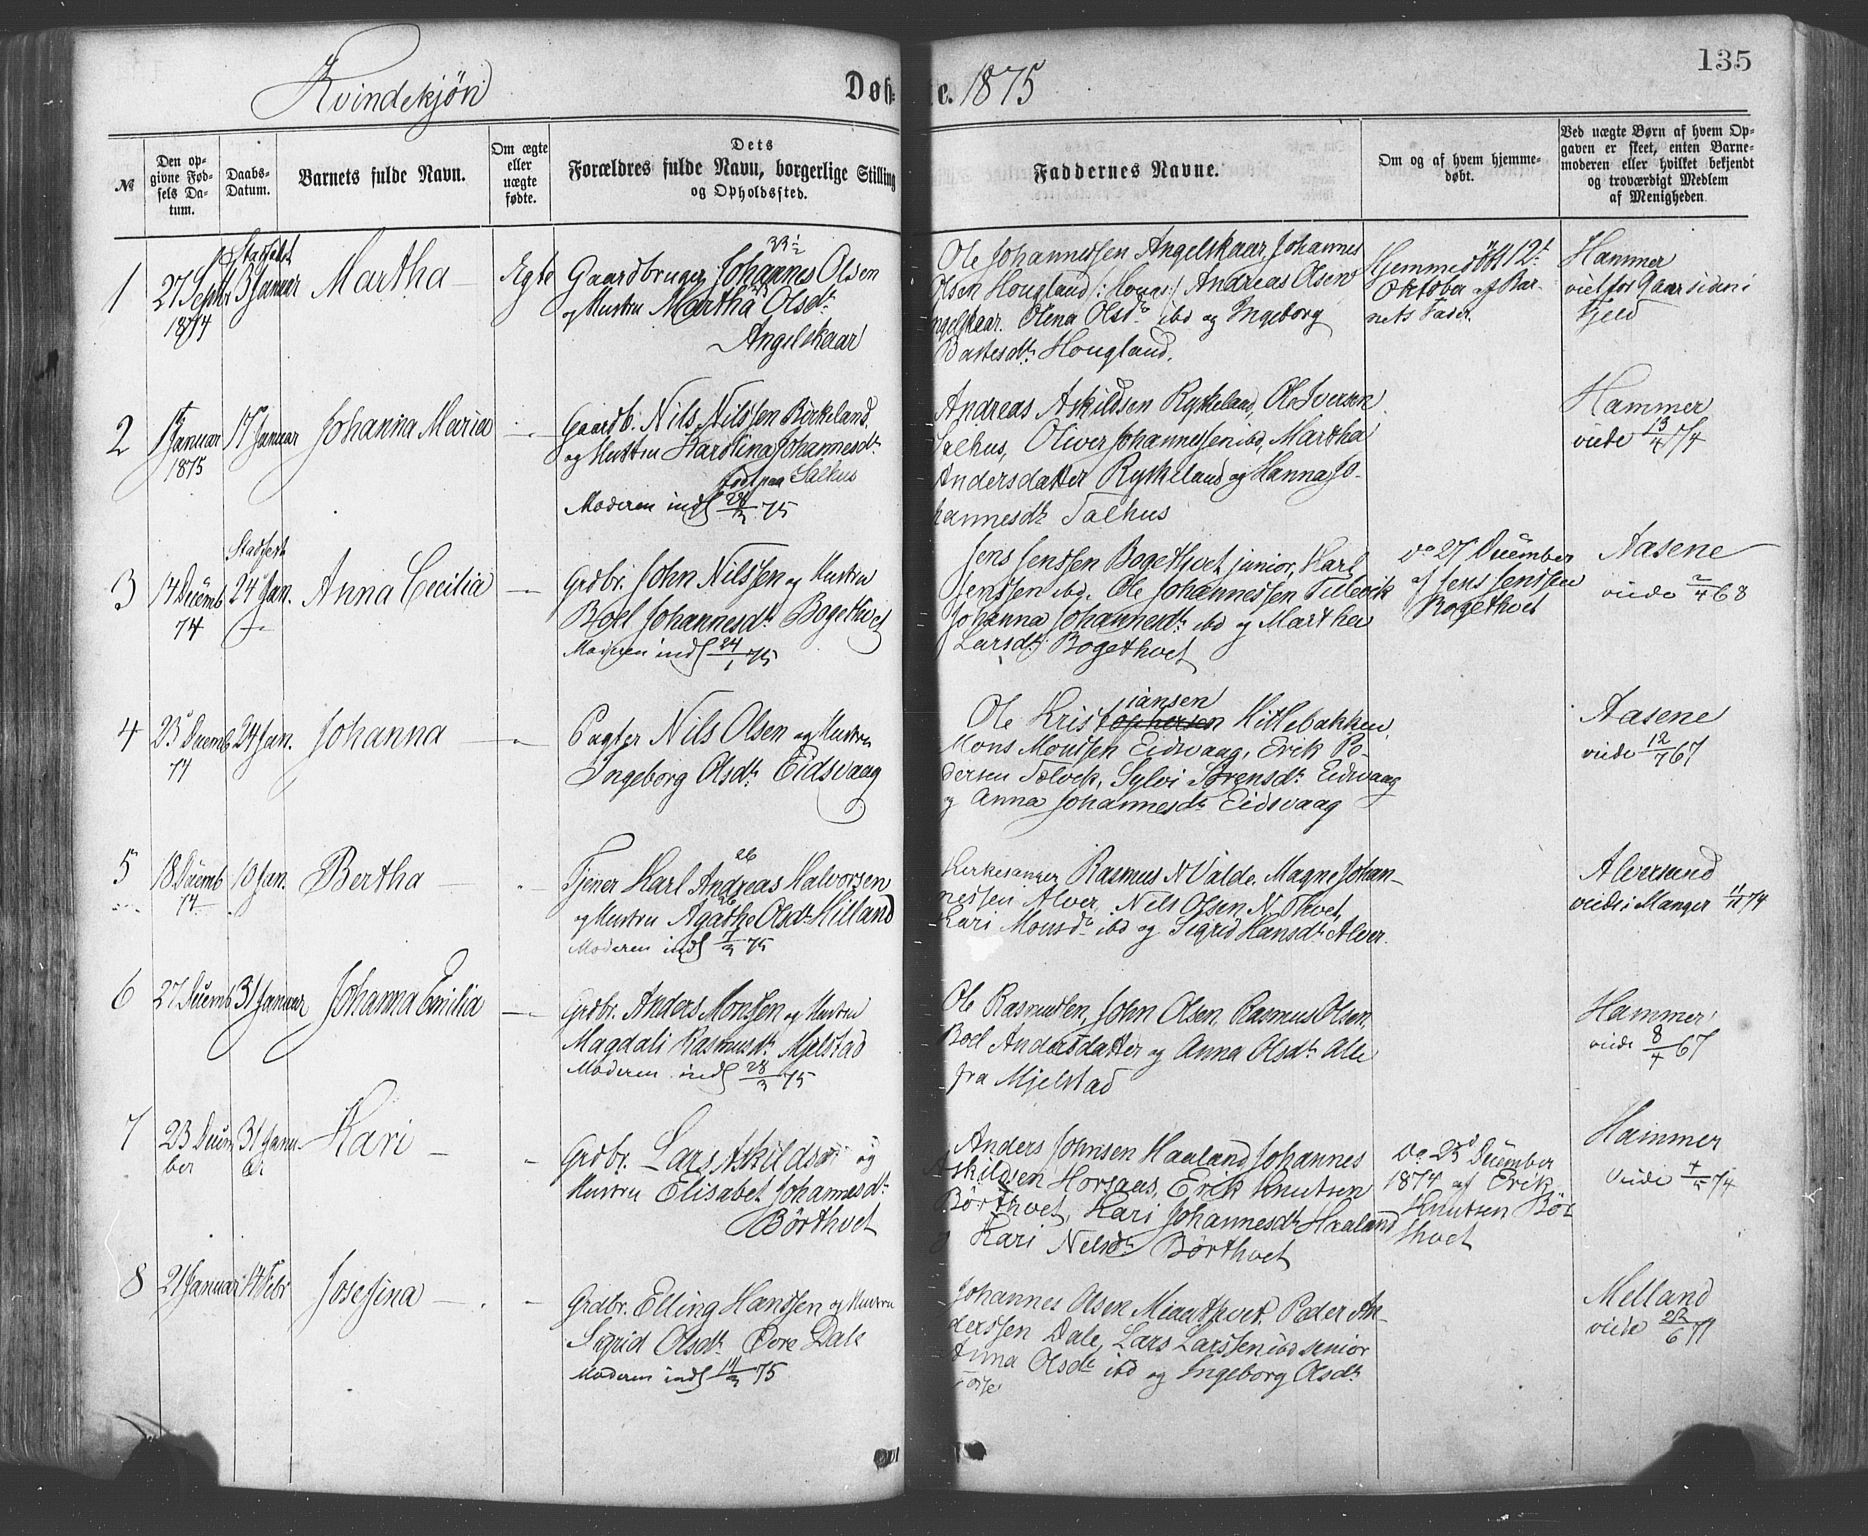 135
Kvindekjøn
Døbte. 1875
№
Den opgivne Fødsels Datum.
Daabs-Datum.
Barnets fulde Navn.
Om ægte eller uægte fødte.
Dets Forældres fulde Navn, borgerlige Stilling og Opholdssted.
Faddernes Navne.
Om og af hvem hjemmedøbt.
Ved uægte Børn af hvem Opgaven er skeet, enten Barnemoderen eller hvilket bekjendt og troværdigt Medlem af Menigheden
1
27 Septbr
1874
Stadfestet
3 Januar
Martha
Egte
33 ½
Gaardbruger Johannes Olsen
og Hustru Martha Olsdr
Angelskaar
Ole Johannessen Angelskaar, Johannes
Olsen Hougland /: Houge:/ Andreas Olsen
Angelskaar. Olena Olsdr ibd og Ingeborg
Bastesdr Hougland.
Hjemmedøbt 12t
Oktober af Bar-
nets Fader.
Hammer
viet for 9 aar siden i
Fjeld
2
1 Januar
1875
17 Januar
Johanna Maria
Gaardb. Nils Nilssen Birkeland
og Hustru Karolina Johannesdr
født paa Salhus
Moderen indl 28/3 75
Andreas Askildsen Rykkeland, Ole Iversen
Salhus, Oliver Johannessen ibd, Martha
Andersdatter Rykkeland og Hanna Jo-
hannesdr Salhus
Hammer
viede 13/4 74
3
14 Decemb
74
Stadfest
24 Jan.
Anna Cecilia
Grdbr. John Nilssen og Hustru
Boel Johannesdr Bogethvet
Moderen indl 24/1 75
Jens Jenssen Bogethvet junior, Karl
Jenssen ibd. Ole Johannessen Tellevik
Johanna Johannesdr ibd og Martha
Larsdr Bogethvet
do 27 December
af Jens Jenssen
Bogethvet
Aasene
viede 2/4 68
4
23 Decemb
74
24 Jan.
Johanna
Pagter Nils Olsen og Hustru
Ingeborg Olsdr Eidsvaag
iansen
Ole Kristophersen Kittebakken,
Mons Monssen Eidsvaag, Erik Pe-
dersen Tælvek, Sylvi Sørensdr Eidsvaag
og Anna Johannesdr Eidsvaag
Aasene
viede 12/7 67
5
18 Decemb
74
10 Jan.
Bertha
26
Tjener Karl Andreas Halvorsen
26
og Hustru Agathe Olsdr Hilland
Moderen indl 7/3 75
Kirkesanger Rasmus N Valde, Magne Johan-
nessen Alver, Nils Olsen N. Thvet,
Kari Monsdr ibd og Sigrid Hansdr Alver.
Alversund
viede i Manger 11/11 74
6
27 Decemb
31 Januar
Johanna Emilia
Grdbr. Anders Monssen og Hustru
Magdali Rasmusdr Mjelstad
Moderen indl 28/3 75
Ole Rasmussen, John Olsen, Rasmus Olsen,
Boel Andersdatter og Anna Olsdr Alle
fra Mjelstad
Hammer
viede 8/4 67
7
23 Decem
ber
31 Janu
ar
Kari
Grdbr. Lars Askildsen og
Hustru Elisabet Johannesdr
Børthvet
Anders Johnsen Haaland, Johannes
Askildsen Horsaas, Erik Knutsen
Børthvet, Kari Johannesdr Haaland
og Kari Nelsdr Børthvet
do 23 December
1874 af Erik
Knutsen Bør
thvet
Hammer
Viede 4/5 74
8
21 Januar
14 Febr
Josefina
Grdbr. Elling Hanssen og Hustru
Sigrid Olsdr Øvre Dale
Moderen indl 14/3 75
Johannes Olsen Mundthvet, Peder An-
derssen Dale, Lars Larssen ibd senior
Anna Olsdr ibd og Ingeborg Olsdr
Melland
viede